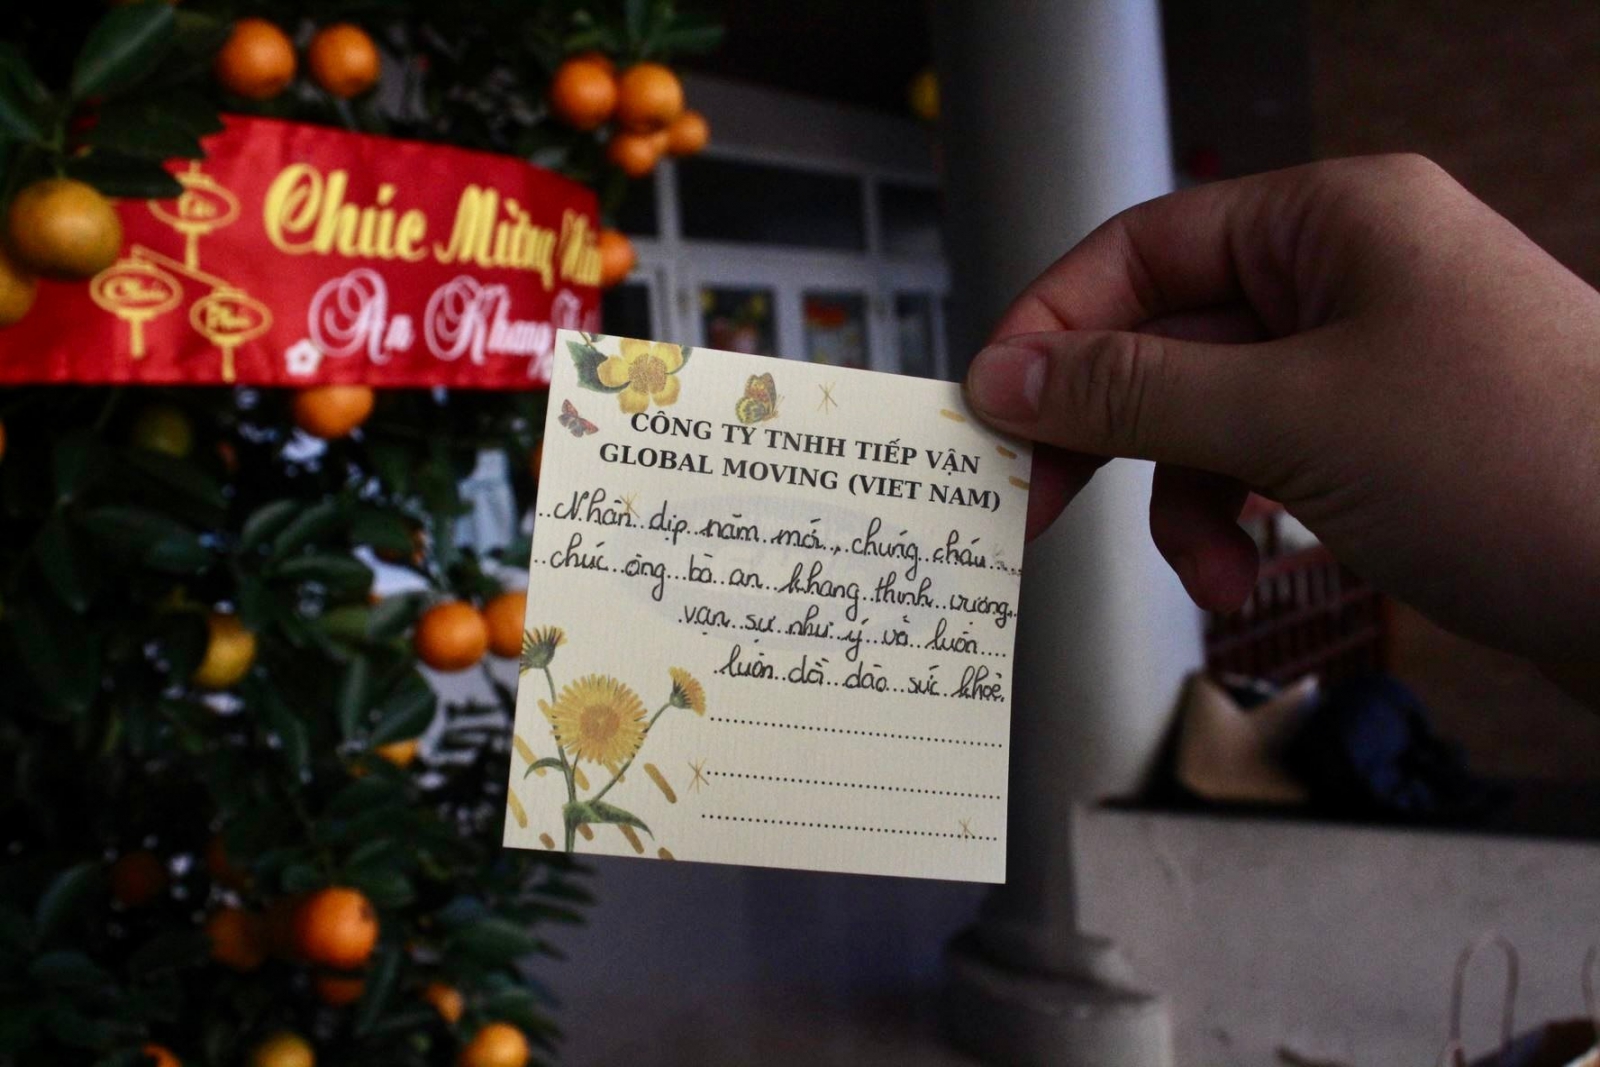 Chúc Mừng
An Khang
CÔNG TY TNHH TIẾP VẬN
GLOBAL MOVING (VIET NAM)
Nhân dịp năm mới, chúng cháu
chúc ông bà an khang thịnh vượng
vạn sự như ý và luôn
luôn dồi dào sức khoẻ.